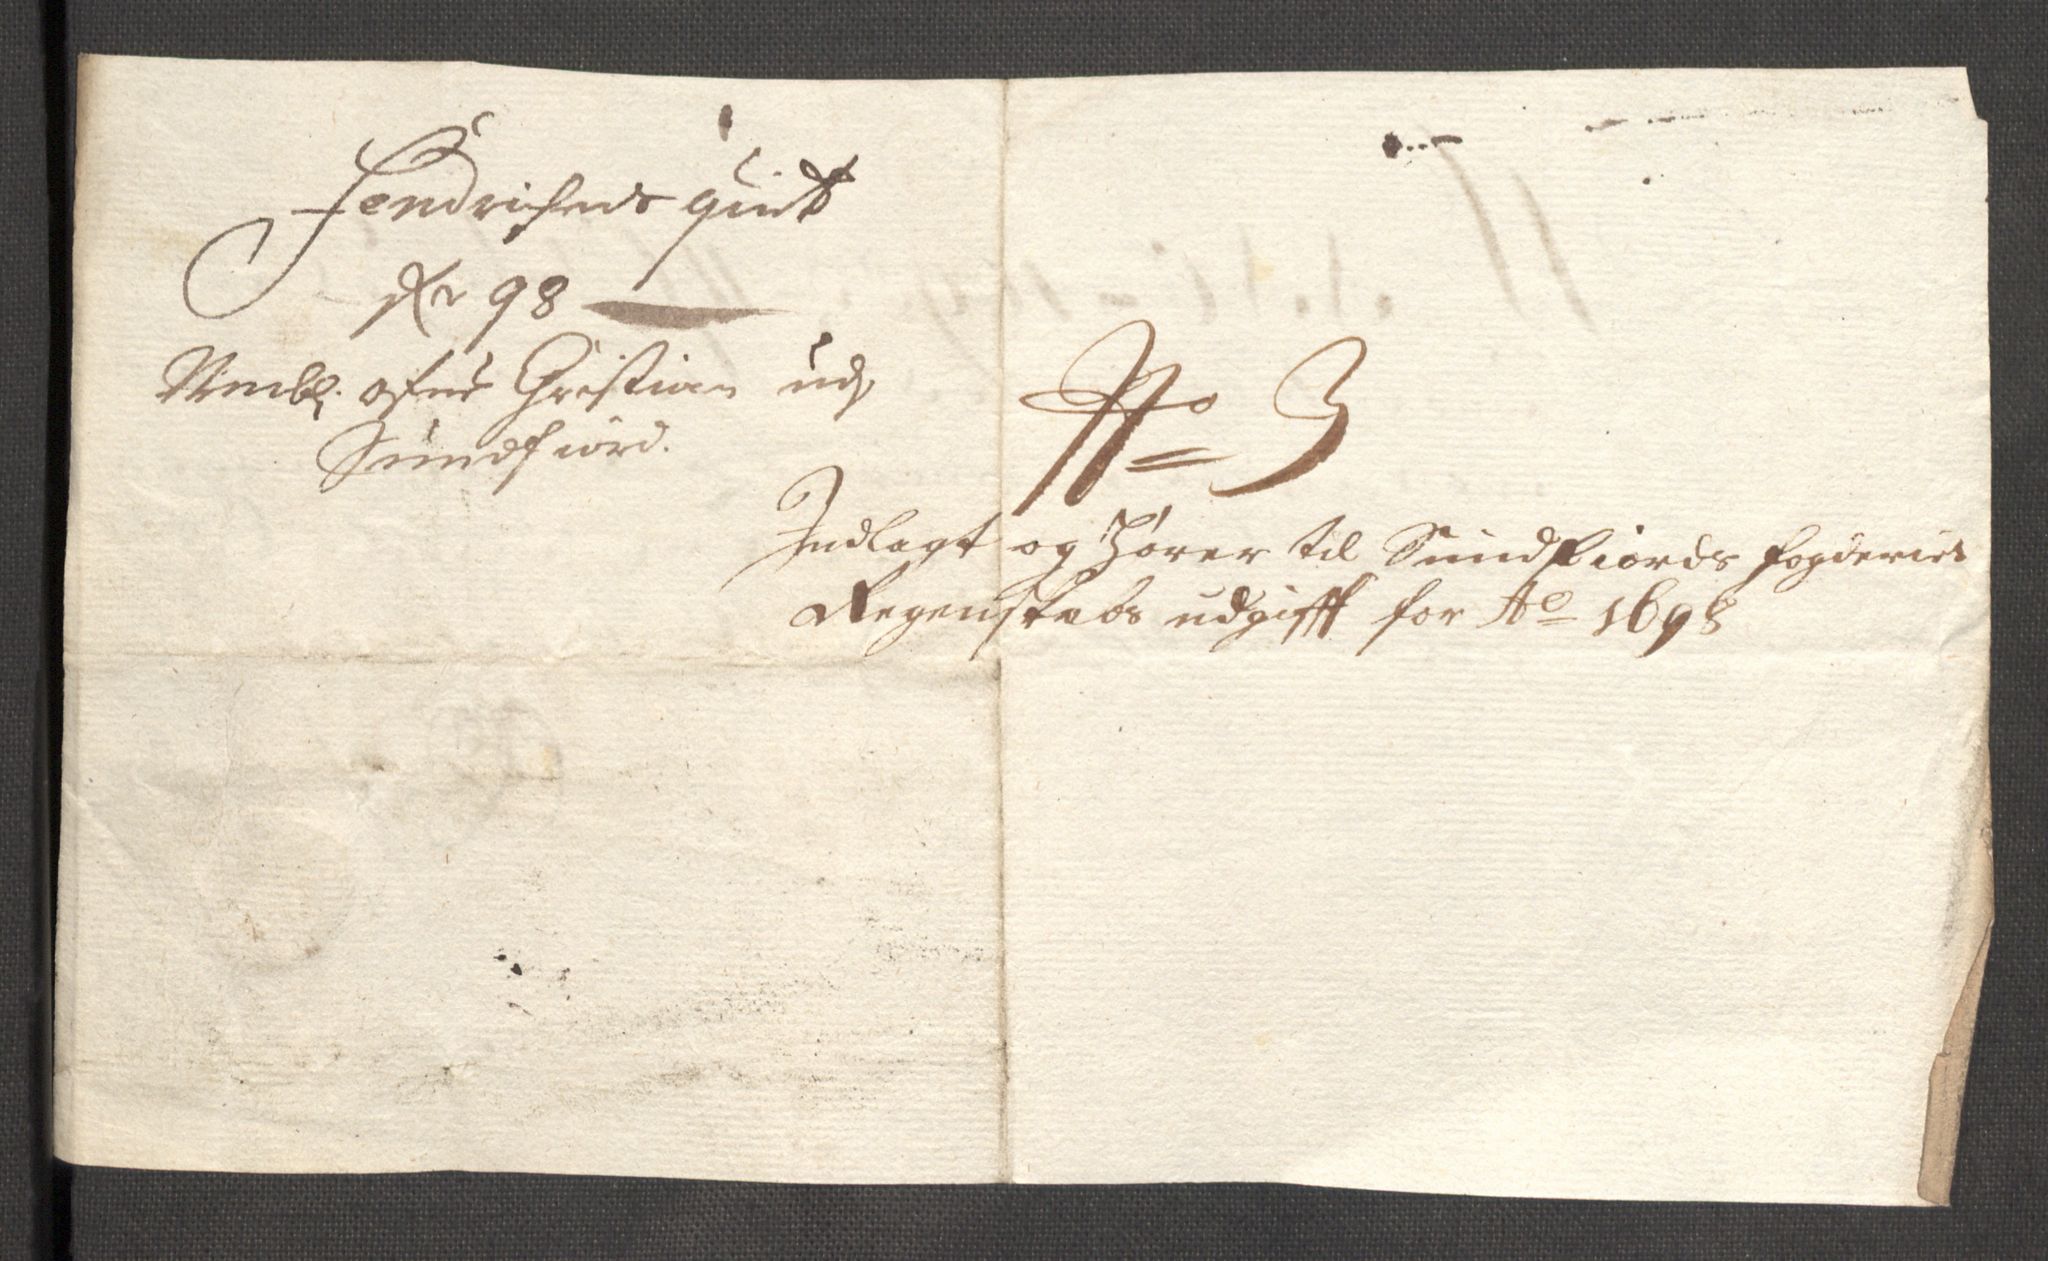 Fendrichens quit
Ao 98
Vembl. ofuer Christian udj
Sundfiord.
No 3
Indlagt og hører til Sundfiords fogderies
Regenskabs udgifft for Ao 1698